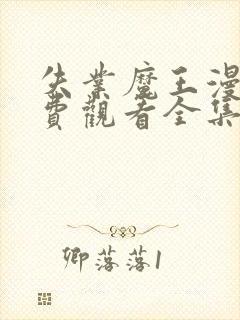 失業魔王漫
費觀看全集
卿落落1